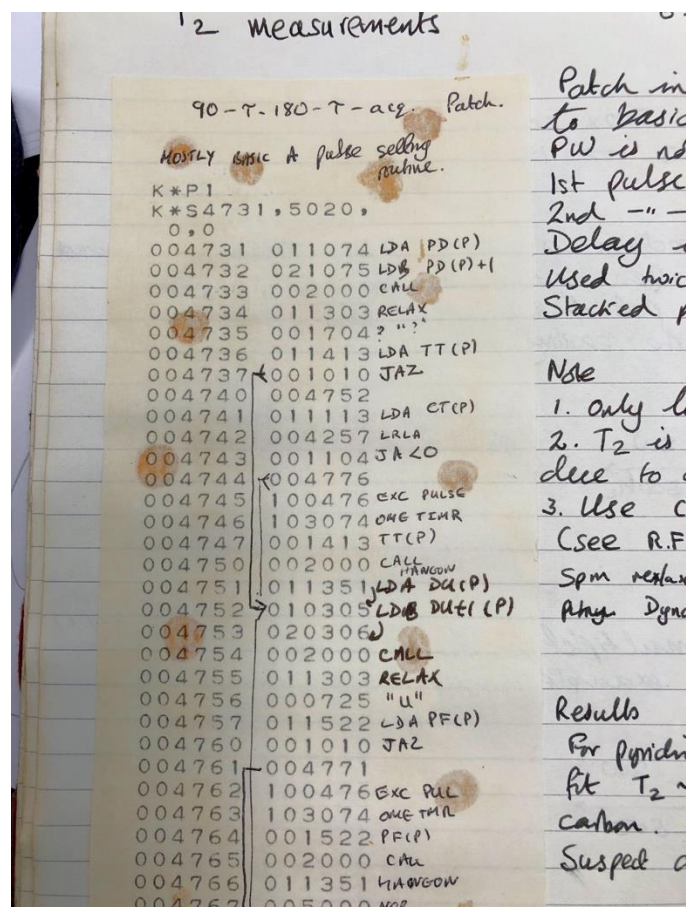 T2 measurements
90-τ-180-τ-acq. Patch.
MOSTLY BASIC A pulse selling
routine.
K*P1
K*S4731,5020,
0,0
004731 011074 LDA PD(P)
004732 021075 LDB PD(P)+1
004733 002000 CALL
004734 011303 RELAX
004735 001704 ? "?"
004736 011413 LDA TT(P)
004737 001010 JAZ
004740 004752
004741 011113 LDA CT(P)
004742 004257 LRLA
004743 001104 JA<0
004744 004776
004745 100476 EXC PULSE
004746 103074 OME TIMR
004747 001413 TT(P)
004750 002000 CALL
HANGON
004751 011351 LDA DU(P)
004752 010305 LDB DU+1(P)
004753 020306
004754 002000 CALL
004755 011303 RELAX
004756 000725 "U"
004757 011522 LDA PF(P)
004760 001010 JAZ
004761 004771
004762 100476 EXC PUL
004763 103074 OME TMR
004764 001522 PF(P)
004765 002000 CALL
004766 011351 HANGON
004767 005000 NOP
Patch in
to basic
PW is no
1st pulse
2nd -"-
Delay
Used twic
Stacked p
Note
1. Only l
2. T2 is
due to
3. Use C
(see R.F
Spm relax
Dyn
Results
For pyridin
fit T2 ~
carbon.
Suspect